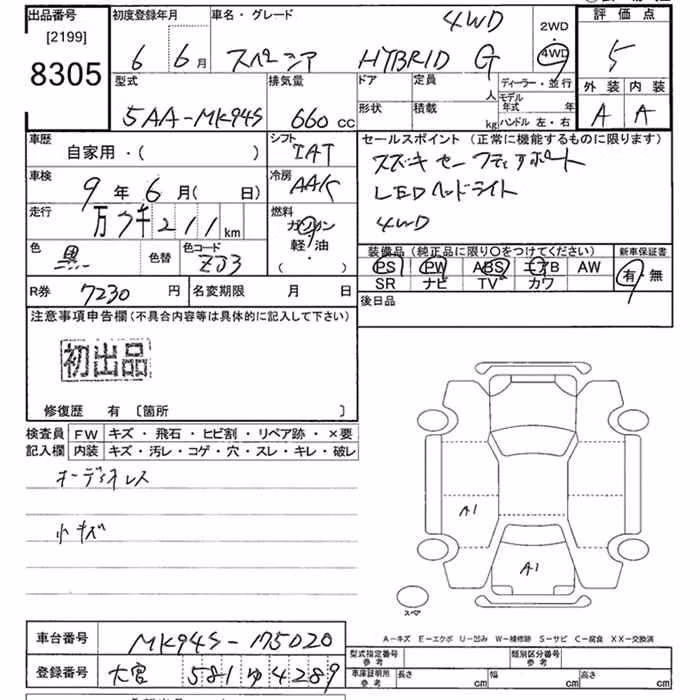 出品番号
[2199]
8305
初度登録年月
6 6 月
車名・グレード
4WD
スペーシア HYBRID G
2WD
4WD
評価点
5
外装 内装
A A
型式
5AA-MK94S
排気量
660 cc
ドア 定員
人
形状 積載
kg
ディーラー・並行
モデル年式 年
ハンドル 左・右
車歴
自家用・( )
シフト
IAT
車検
9 年 6 月( 日)
冷房
AAC
走行
211 km
燃料
ガソリン
軽・油
・
( )
色
黒
色替
色コード
ZJ3
セールスポイント (正常に機能するものに限ります)
スズキセーフティサポート
LEDヘッドライト
4WD
装備品 (純正品に限り〇をつけてください)
PS PW ABS エアB AW
SR ナビ TV カワ
新車保証書
有 無
R券 7230 円
名変期限 月 日
後日品
注意事項申告欄(不具合内容等は具体的に記入して下さい)
初出品
修復歴 有 [箇所 ]
検査員 FW キズ・飛石・ヒビ割・リペア跡・×要
記入欄 内装 キズ・汚レ・コゲ・穴・スレ・キレ・破レ
オーディオレス
小キズ
A1
A1
スペア
A-キズ E-エクボ U-凹み W-補修跡 S-サビ C-腐食 XX-交換済
車台番号 MK94S-175020
登録番号 大宮 581 ゆ 4289
型式指定番号
参考
類別区分番号
参考
車庫証明用
参考
長さ cm 幅 cm 高さ cm